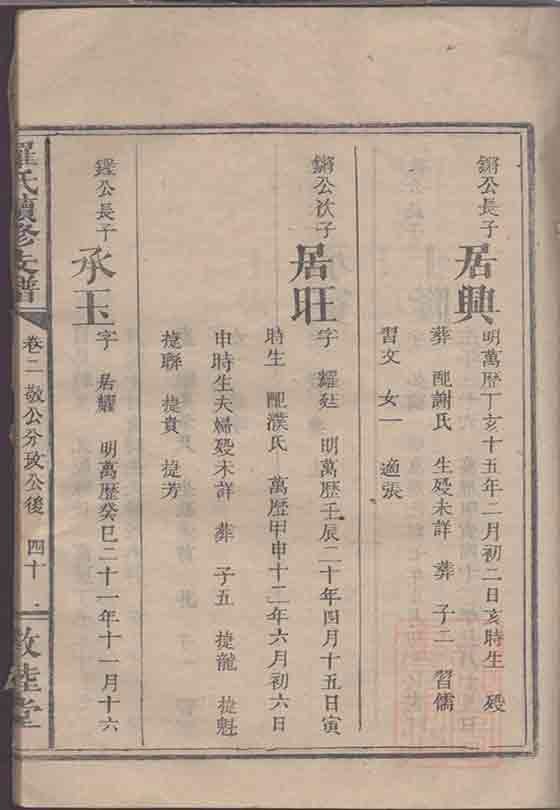 鏘公長子
居興
明萬歷丁亥十五年二月初二日亥時生 歿
葬 配謝氏 生歿未詳 葬 子二 習儒
習文 女一 適張
鏘公次子
居旺
字 耀廷 明萬歷壬辰二十年四月十五日寅
時生 配濮氏 萬歷甲申十二年六月初六日
申時生夫婦歿未詳 葬 子五 捷龍 捷魁
捷聯 捷貴 捷芳
公長子
承玉
字 居耀 明萬歷癸巳二十一年十一月十六
羅氏續修支譜
卷二 敬公分攷公後 四十一
敦睦堂